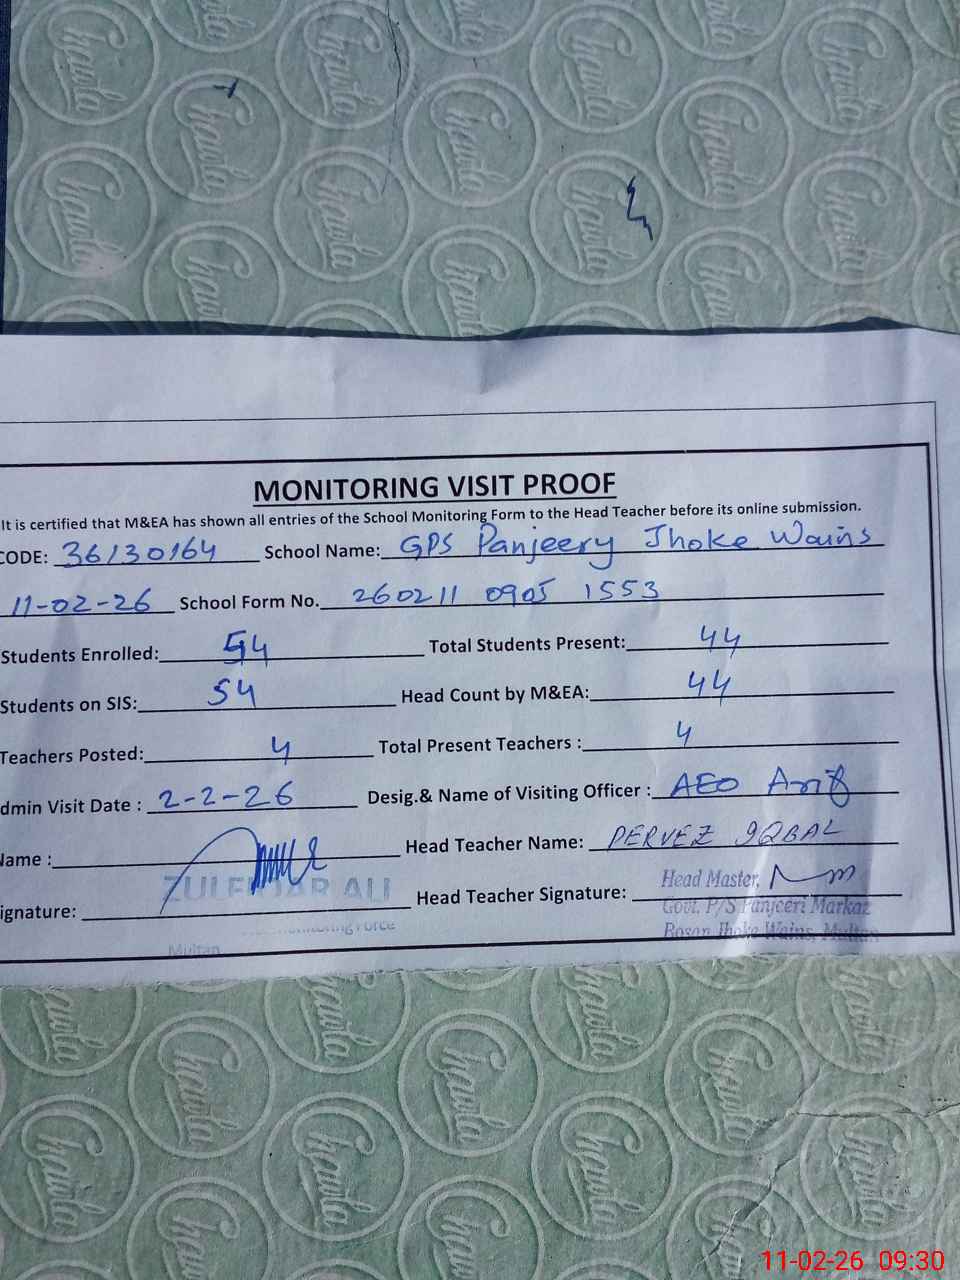 MONITORING VISIT PROOF
It is certified that M&EA has shown all entries of the School Monitoring Form to the Head Teacher before its online submission.
CODE: 36130164 School Name: GPS Panjeery Jhoke Wains
11-02-26 School Form No. 260211 0905 1553
Students Enrolled: 54 Total Students Present: 44
Students on SIS: 54 Head Count by M&EA: 44
Teachers Posted: 4 Total Present Teachers : 4
dmin Visit Date : 2-2-26 Desig.& Name of Visiting Officer : AEO Arif
Name : Head Teacher Name: PERVEZ IQBAL
ignature: ZULFIQAR ALI Head Teacher Signature: Head Master,
Govt. P/S Panjceri Markaz
Multan Bosan Jhoke Wains, Multan
11-02-26 09:30